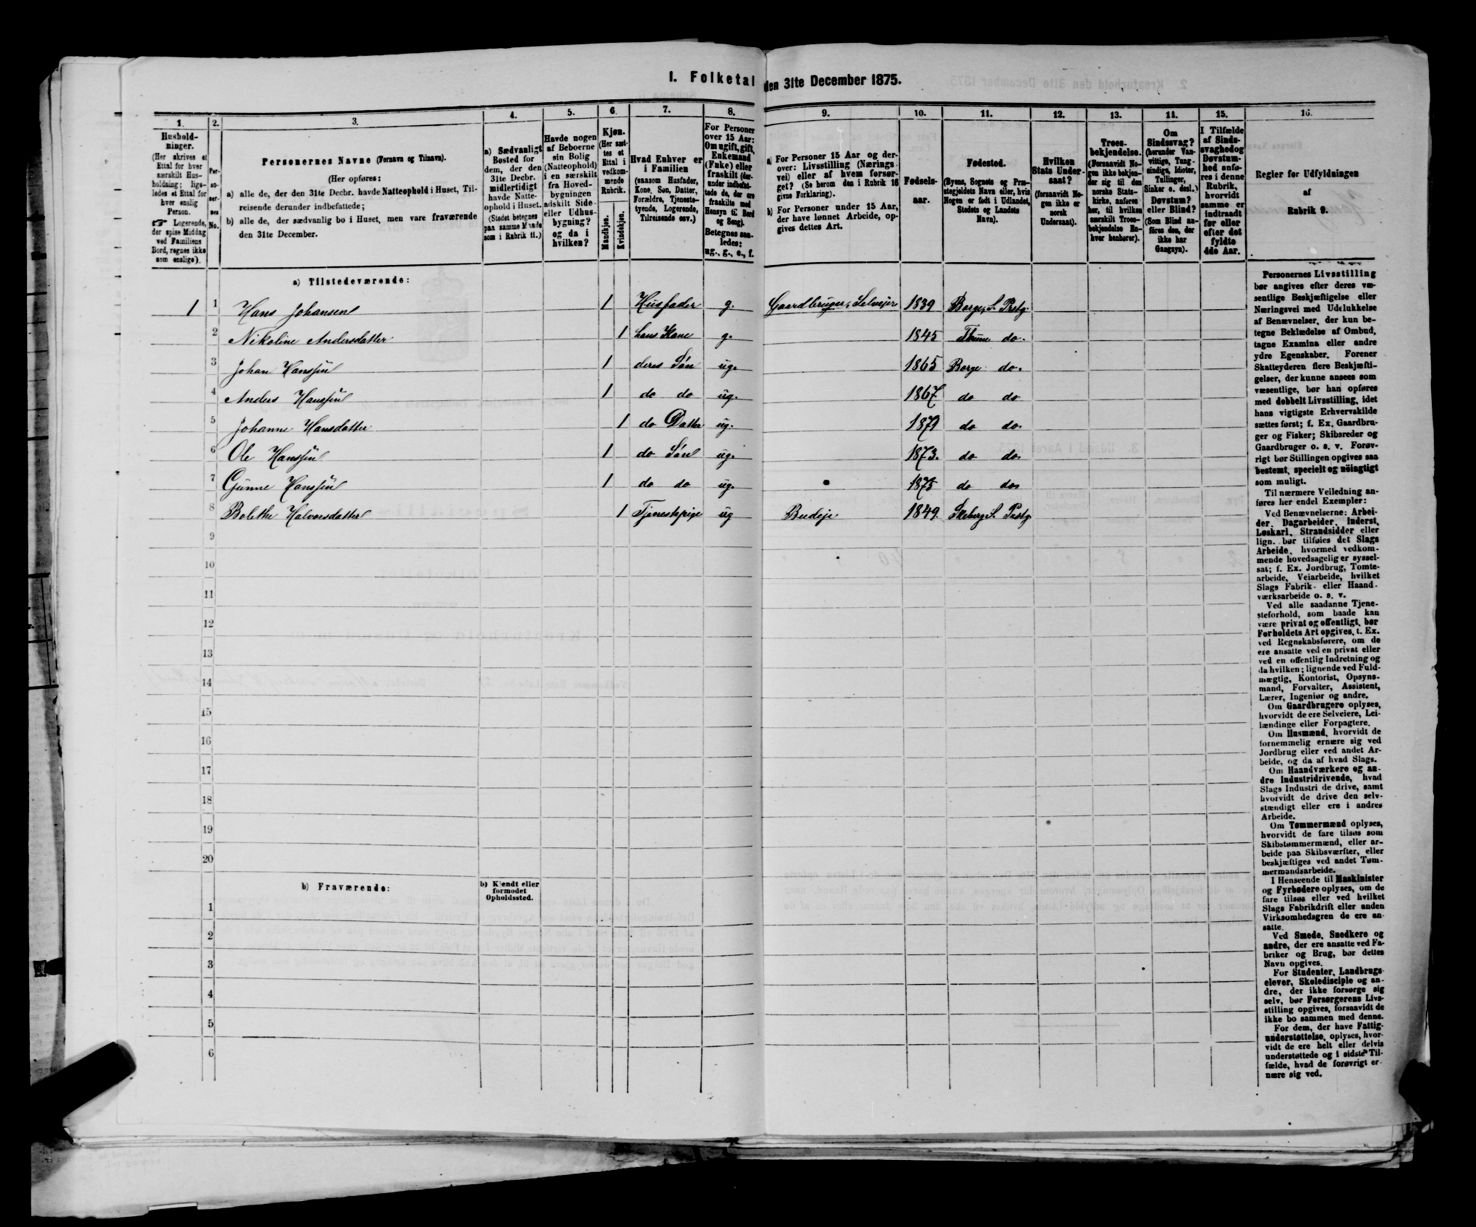 I. Folketal den 31te December 1875.
1.
2.
3.
4.
5.
6.
7.
8.
9.
10.
11.
12.
13.
14.
15.
16.
Hushold-
ninger.
(Her skrives et
Ettal for hver
særskilt Hus-
holdning; lige-
ledes et Ettal for
hver enslig
Person.
☞ Logerende,
der spise Middag
ved Familiens
Bord, regnes ikke
som enslige).
Per-
so-
ner-
nes
No.
Personernes Navne (Fornavn og Tilnavn).
(Her opføres:
a) alle de, der den 31te Decbr. havde Natteophold i Huset, Til-
reisende derunder indbefattede;
b) alle de, der sædvanlig bo i Huset, men vare fraværende
den 31te December.
a) Sædvanligt
Bosted for
dem, der den
31te Decbr.
midlertidigt
havde Natte-
ophold i Huset.
(Stedet betegnes
paa samme Maade
som i Rubrik 11.)
Havde nogen
af Beboerne
sin Bolig
(Natteophold)
i en særskilt
fra Hoved-
bygningen
adskilt Side-
eller Udhus-
bygning?
og da i
hvilken?
Kjøn.
(Her sæt-
tes et
Ettal i
vedkom-
mende
Rubrik.
Mandkjøn.
Kvindekjøn.
Hvad Enhver er
i Familien
(saasom Husfader,
Kone, Søn, Datter,
Forældre, Tjeneste-
tyende, Logerende,
Tilreisende osv.)
For Personer
over 15 Aar:
Om ugift, gift,
Enkemand
(Enke) eller
fraskilt (der-
under indbefat-
tede de, der ere
fraskilte med
Hensyn til Bord
og Seng).
Betegnes saa-
ledes:
ug., g., e., f.
a) For Personer 15 Aar og der-
over: Livsstilling (Nærings-
vei) eller af hvem forsør-
get? (Se herom den i Rubrik 16
givne Forklaring).
b) For Personer under 15 Aar,
der have lønnet Arbeide, op-
gives dettes Art.
Fødsels-
aar.
Fødested.
(Byens, Sognets og Præ-
stegjeldets Navn eller, hvis
Nogen er født i Udlandet,
Stedets og Landets
Navn).
Hvilken
Stats Under-
saat?
(forsaavidt No-
gen ikke er
norsk
Undersaat).
Troes-
bekjendelse.
(Forsaavidt No-
gen ikke bekjen-
der sig til den
norske Stats-
kirke, anføres
her, til hvilken
særskilt Troes-
bekjendelse En-
hver henhører).
Om
Sindssvag?
(herunder Van-
vittige, Tung-
sindige, Idioter,
Tullinger,
Sinker o. desl.)
Døvstum?
eller Blind?
(Som Blind an-
føres den, der
ikke har
Gangsyn).
I Tilfælde
af Sinds-
svaghed og
Døvstum-
hed anfø-
res i denne
Rubrik,
hvorvidt
samme er
indtraadt
før eller
efter det
fyldte
4de Aar.
Regler for Udfyldningen
af
Rubrik 9.
a) Tilstedeværende:
1 1 Hans Johansen 1 Husfader g. Gaardbruger, Selveier 1839 Berge, S. Prstg
2 Nikoline Andersdatter 1 hans Kone g. 1845 Thune do.
3 Johan Hanssen 1 deres Søn ug. 1865 Berge do.
4 Anders Hanssen 1 do do ug. 1867 do do
5 Johanne Hansdatter 1 do Datter ug. do do.
6 Ole Hanssen 1 do Søn ug. 1873. do do.
7 Gunne Hanssen 1 do do ug. 1875 do do
8 Bolethe Halvorsdatter 1 Tjenestepige ug Budeje 1849 Skeberg S. Prstg
9
10
11
12
13
14
15
16
17
18
19
20
b) Fraværende:
b) Kjendt eller
formodet
Opholdssted.
1
2
3
4
5
6
Personernes Livsstilling
bør angives efter deres væ-
sentlige Beskjæftigelse eller
Næringsvei med Udelukkelse
af Benævnelser, der kun be-
tegne Beklædelse af Ombud,
tagne Examina eller andre
ydre Egenskaber. Forener
Skatteyderen flere Beskjæfti-
gelser, der kunne ansees som
væsentlige, bør han opføres
med dobbelt Livsstilling, idet
hans vigtigste Erhvervskilde
sættes først; f. Ex. Gaardbru-
ger og Fisker; Skibsreder og
Gaardbruger o. s. v. Forøv-
rigt bør Stillingen opgives saa
bestemt, specielt og nöiagtigt
som muligt.
Til nærmere Veiledning an-
føres her endel Exempler:
Ved Benævnelserne: Arbei-
der, Dagarbeider, Inderst,
Løskarl, Strandsidder eller
lign. bør tilføies det Slags
Arbeide, hvormed vedkom-
mende hovedsagelig er syssel-
sat; f. Ex. Jordbrug, Tomte-
arbeide, Veiarbeide, hvilket
Slags Fabrik- eller Haand-
værksarbeide o. s. v.
Ved alle saadanne Tjene-
steforhold, som baade kan
være privat og offentligt, bør
Forholdets Art opgives, f. Ex.
ved Regnskabsførere, om de
ere ansatte ved en privat eller
ved en offentlig Indretning og
da hvilken; lignende ved Fuld-
mægtig, Kontorist, Opsyns-
mand, Forvalter, Assistent,
Lærer, Ingeniør og andre.
Om Gaardbrugere oplyses,
hvorvidt de ere Selveiere, Lei-
lændinge eller Forpagtere.
Om Husmænd, hvorvidt de
fornemmelig ernære sig ved
Jordbrug eller ved andet Ar-
beide, og da af hvad Slags.
Om Haandværkere og an-
dre Industridrivende, hvad
Slags Industri de drive, samt
hvorvidt de drive den selv-
stændigt eller ere i andres
Arbeide.
Om Tømmermænd oplyses,
hvorvidt de fare tilsøs som
Skibstømmermænd, eller ar-
beide paa Skibsværfter, eller
beskjæftiges ved andet Tøm-
mermandsarbeide.
I Henseende til Maskinister
og Fyrbødere oplyses, om de
fare tilsøs eller ved hvilket
Slags Fabrikdrift eller anden
Virksomhedsgren de ere an-
satte.
Ved Smede, Snedkere og
andre, der ere ansatte ved Fa-
briker og Brug, bør dettes
Navn opgives.
For Studenter, Landbrugs-
elever, Skoledisciple og an-
dre, der ikke forsørge sig
selv, bør Forsørgerens Livs-
stilling opgives, forsaavidt de
ikke bo sammen med denne.
For dem, der have Fattig-
understøttelse, oplyses, hvor-
vidt de ere helt eller delvis
understøttede og i sidste Til-
fælde, hvad de forøvrigt er-
nære sig ved.